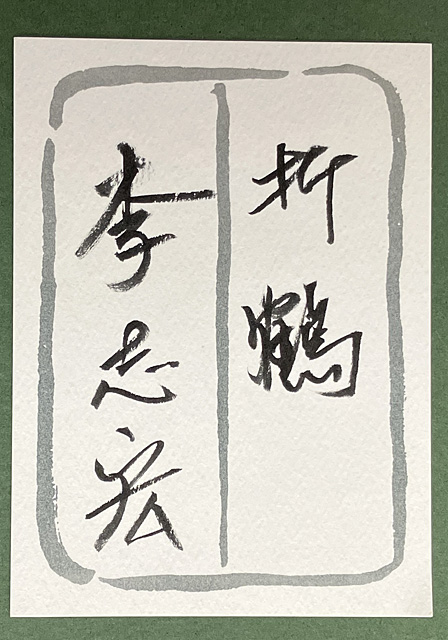 折鶴
李志宏